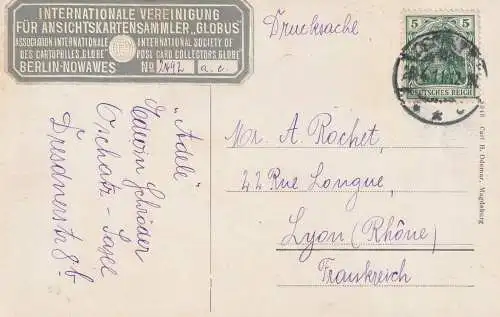 INTERNATIONALE VEREINIGUNG
FÜR ANSICHTSKARTENSAMMLER „GLOBUS"
ASSOCIATION INTERNATIONALE
DES CARTOPHILES „GLOBE"
INTERNATIONAL SOCIETY OF
POST CARD COLLECTORS „GLOBE"
BERLIN-NOWAWES
No 2492 a. c.
Drucksache
5 5
DEUTSCHES REICH
„Adele"
Schröder
Oschatz
Dresdnerstr 8b
Mr. A. Rochet,
42 Rue Longue,
Lyon (Rhône)
Frankreich
Carl H. Odemar, Magdeburg